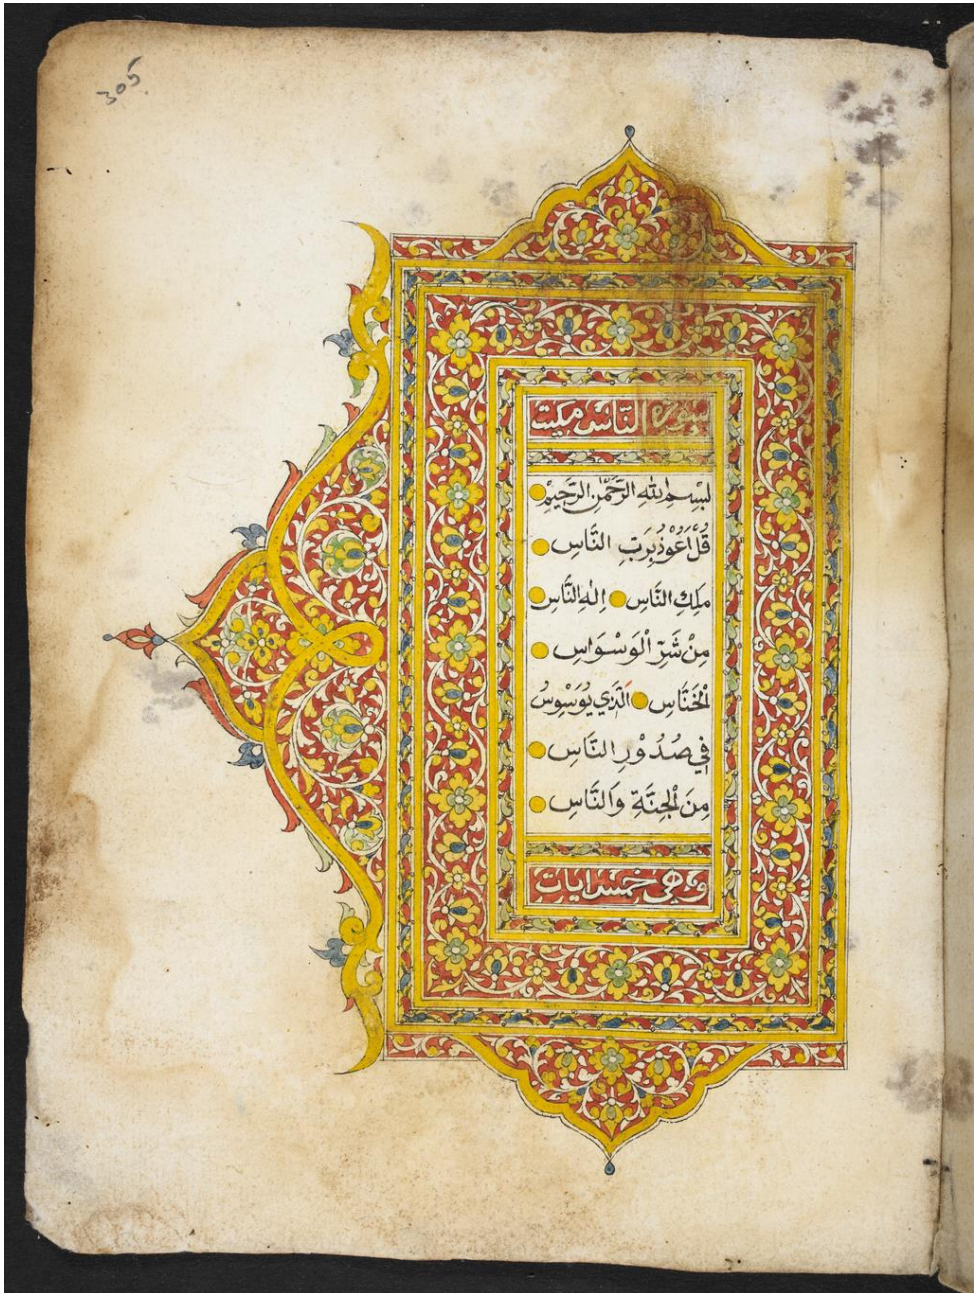 305
سورة الناس مكية
بِسْمِ اللهِ الرَّحْمٰنِ الرَّحِيْمِ
قُلْ اَعُوْذُ بِرَبِّ النَّاسِ
مَلِكِ النَّاسِ اِلٰهِ النَّاسِ
مِنْ شَرِّ الْوَسْوَاسِ
الْخَنَّاسِ الَّذِي يُوَسْوِسُ
فِي صُدُوْرِ النَّاسِ
مِنَ الْجِنَّةِ وَالنَّاسِ
وهي خمس ايات